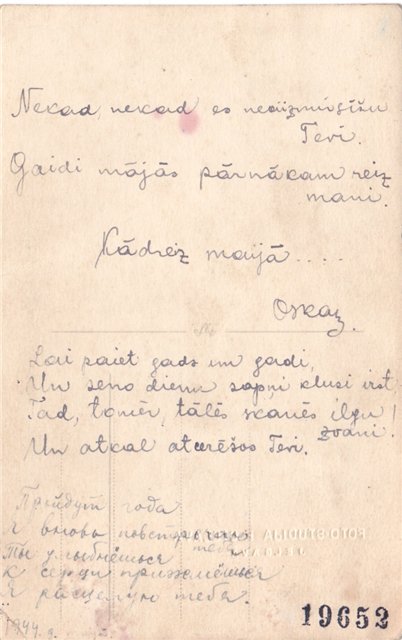 Nekad, nekad es neaizmirsīšu
Tevi.
Gaidi mājās pārnākam reiz
mani.
Kādreiz maijā....
Oskaz.
Lai paiet gads un gadi,
Un seno dienu sapņi klusi irst,
Tad, tomēr, tālēs skanēs ilgu
zvani!
Un atkal atcerēšos Tevi.
Прийдут года
Я вновь повстречаю
тебя
Ты улыбнёшься
К серцу прижмёшься
Я расцелую тебя.
1944. g.
FOTO STUDIJA
19652